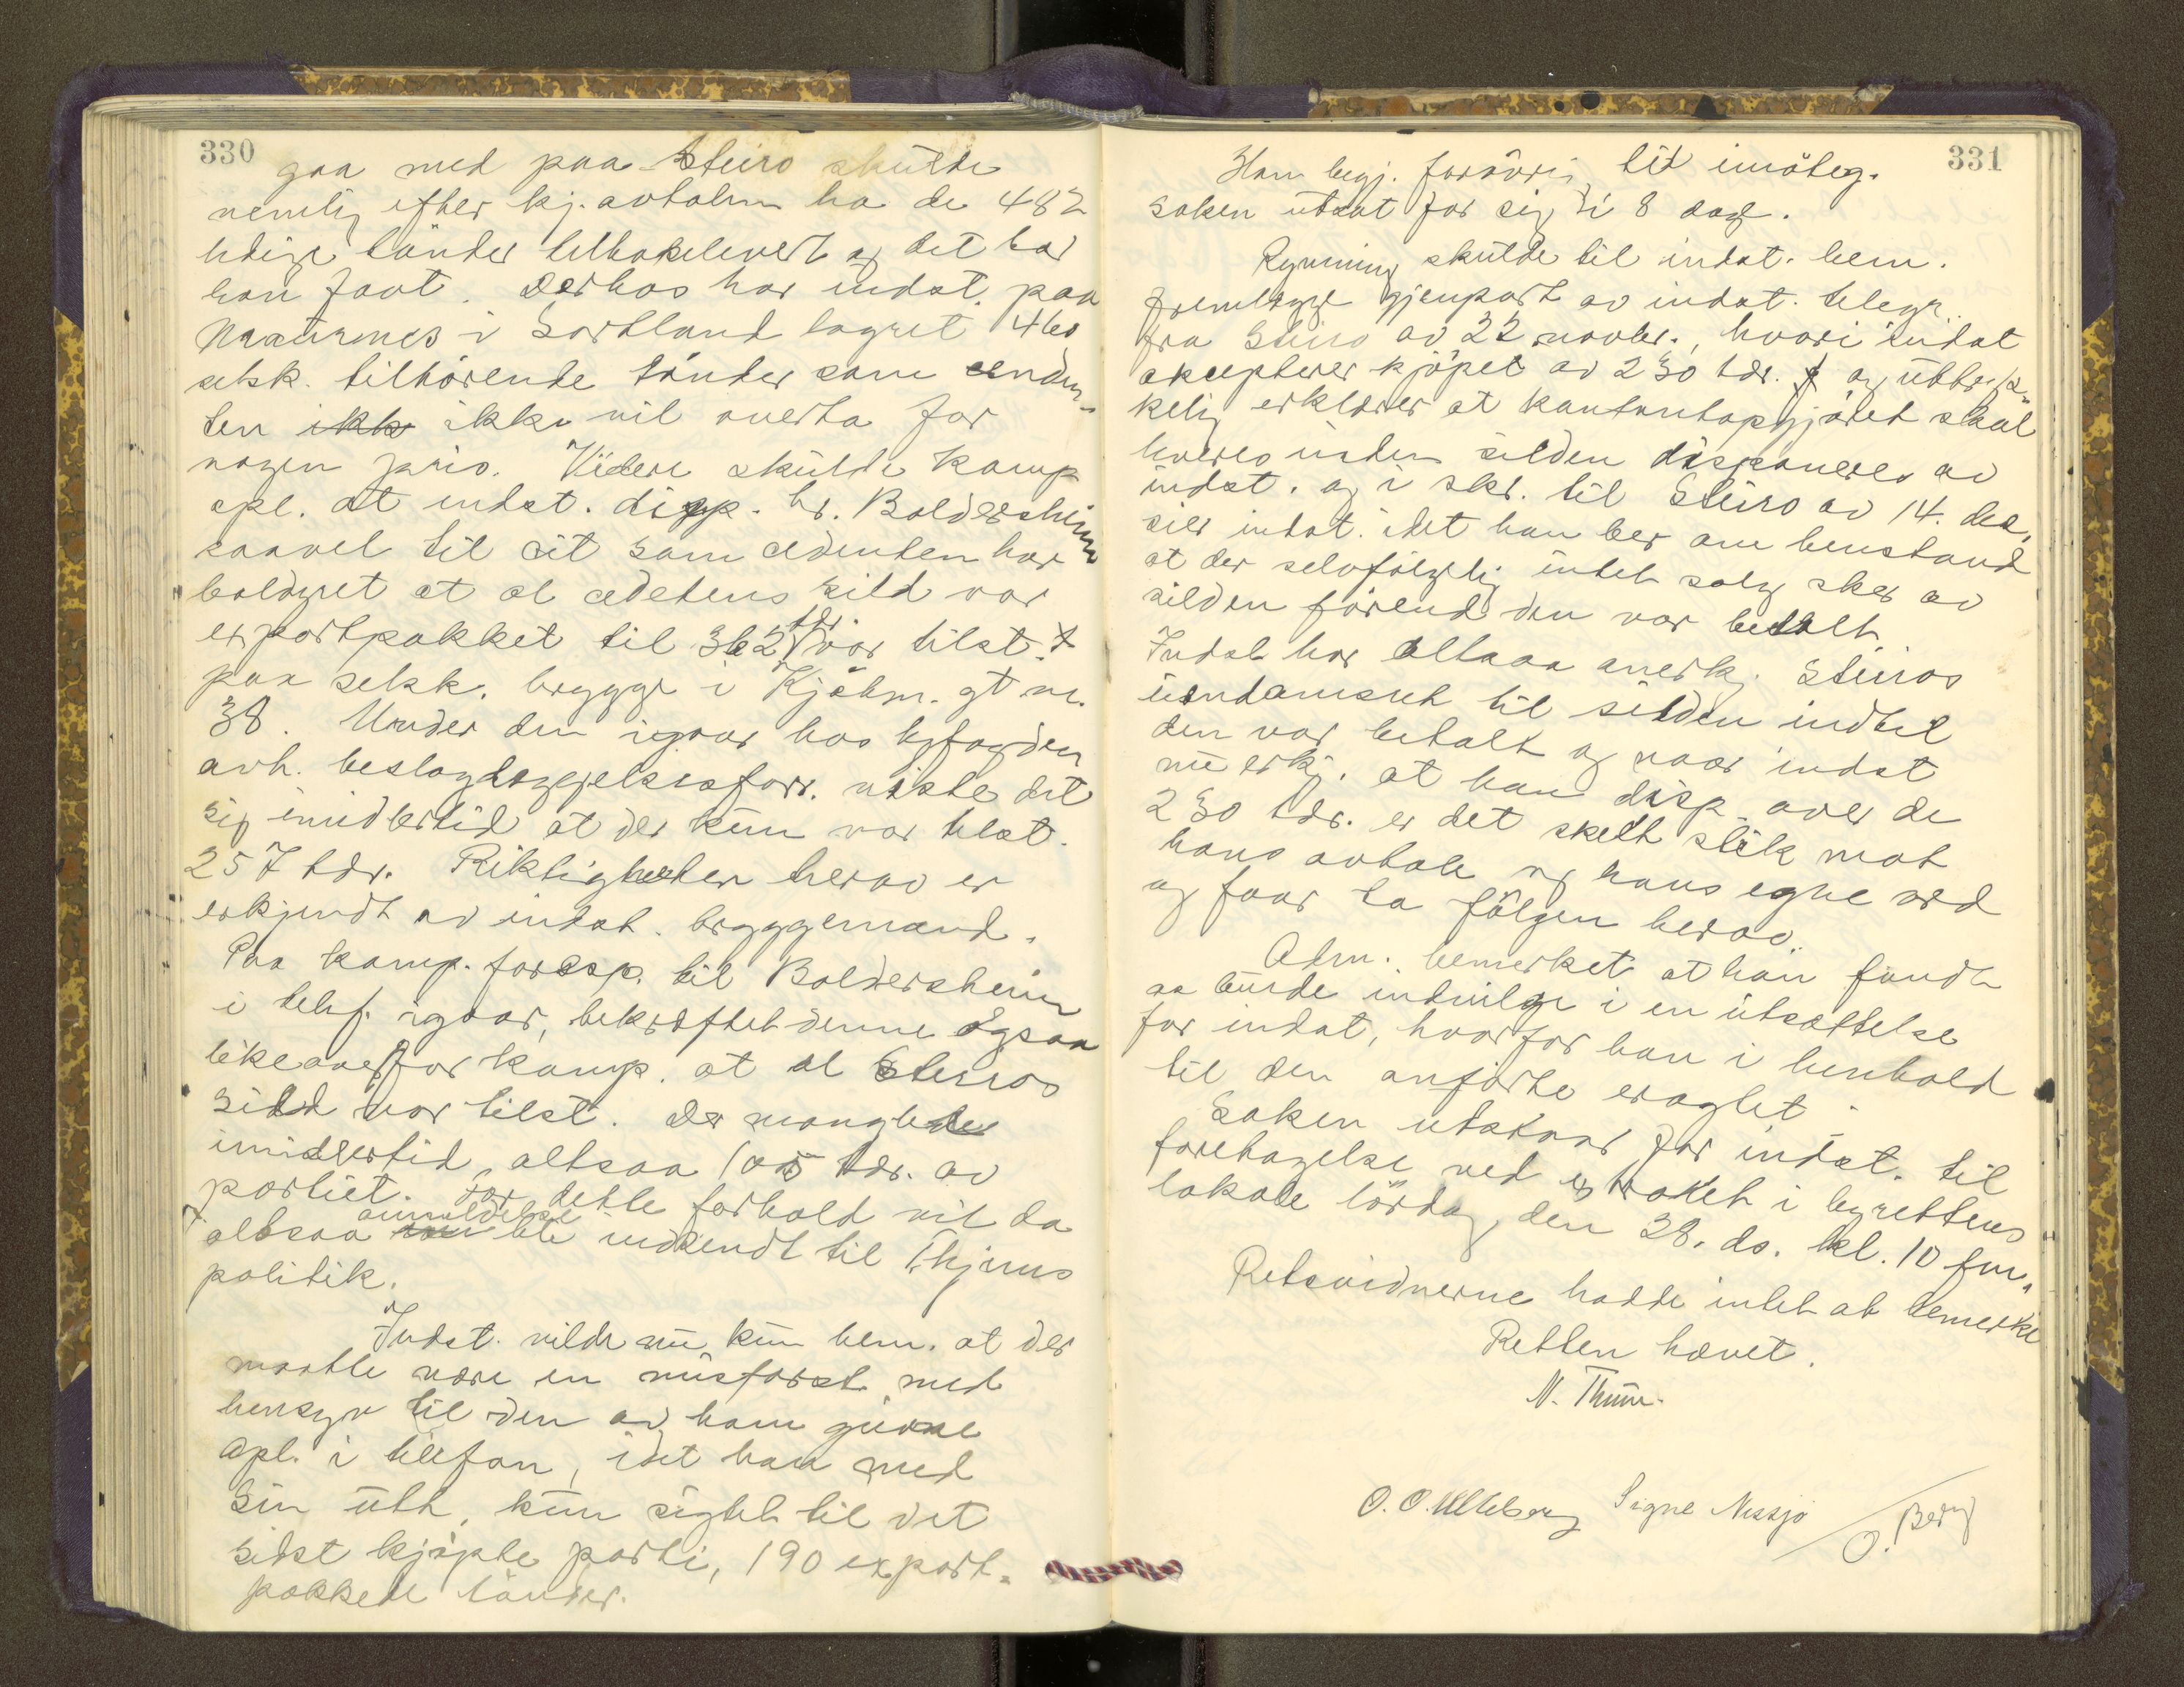 330
gaa med paa Steiro skulde
nemlig efter kj. avtalen ha de 482
ledige tönder tilbakelevert og det har
han faat. Derhos har indst. paa
Maurnes i Sortland lagret 460
selsk. tilhörende tönder som
ten ikke vil overta for
nogen pris. Videre skulde Kamp
opl. at indst. disp. hr. Boldersheim
saavel til cit som cedenten har
boldret at al cedetens sild var
exportpakket til 362 tdr. var tilst.
paa selsk. brygge i Kjöbm. gt nr.
38. Under den igaar hos byfogden
avh. beslaglæggelsesforr. viste det
sig imidlertid at der kun var tilst.
257 tdr. Riktigheten herav er
erkjendt av indst. bryggemand.
Paa Kamp. foresp. til Boldersheim
i telef. igaar, bekræftet denne ogsaa
likeoverfor Kamp. at al Steiros
sild var tilst. Der manglede
imidlertid altsaa 105 tdr. av
partiet. For dette forhold vil da
altsaa anmeldelse bli indsendt til Thjems
politik.
Indst. vilde nu kun bem. at der
maatte være en misforst. med
hensyn til den av ham givne
opl. i telefon, idet han med
sin utt. kun sigtet til det
sidst kjöpte parti, 190 export-
pakkede tönder.
331
Han begj. forövrig til imöteg.
saken utsat for sig i 8 dage.
Rynning skulde til indst. bem.
fremlægge gjenpart av indst. telegr.
fra Steiro av 22 novbr., hvori indst
aksepterer kjöpet av 230 tdr. og uttryk-
kelig erklærer at kontantopgjöret skal
leveres inden silden disponeres av
indst. og i skr. til Steiro av 14. des.
sier indst. idet han ber om henstand
at der selvfölgelig intet salg sker av
silden förend den var betalt.
Indst har altsaa anerkj. Steiros
eiendomsret til silden indtil
den var betalt og naar indst
nu erkj. at han disp. over de
230 tdr. er det skedt slik mot
hans avtale og hans egne ord
og faar ta fölgen herav.
Adm. bemerket at han fandt
aa burde indvilge i en utsættelse
for indst, hvorfor han i henhold
til den anförte eragtet
Saken utstaar for indst. til
foretagelse ved extraret i byrettens
lokale lördag den 28. ds. kl. 10 fm.
Retsvidnerne hadde intet at bemerke
Retten hævet.
N. Thüm.
O. O. Utteberg Signe Nessjö
O. Berg